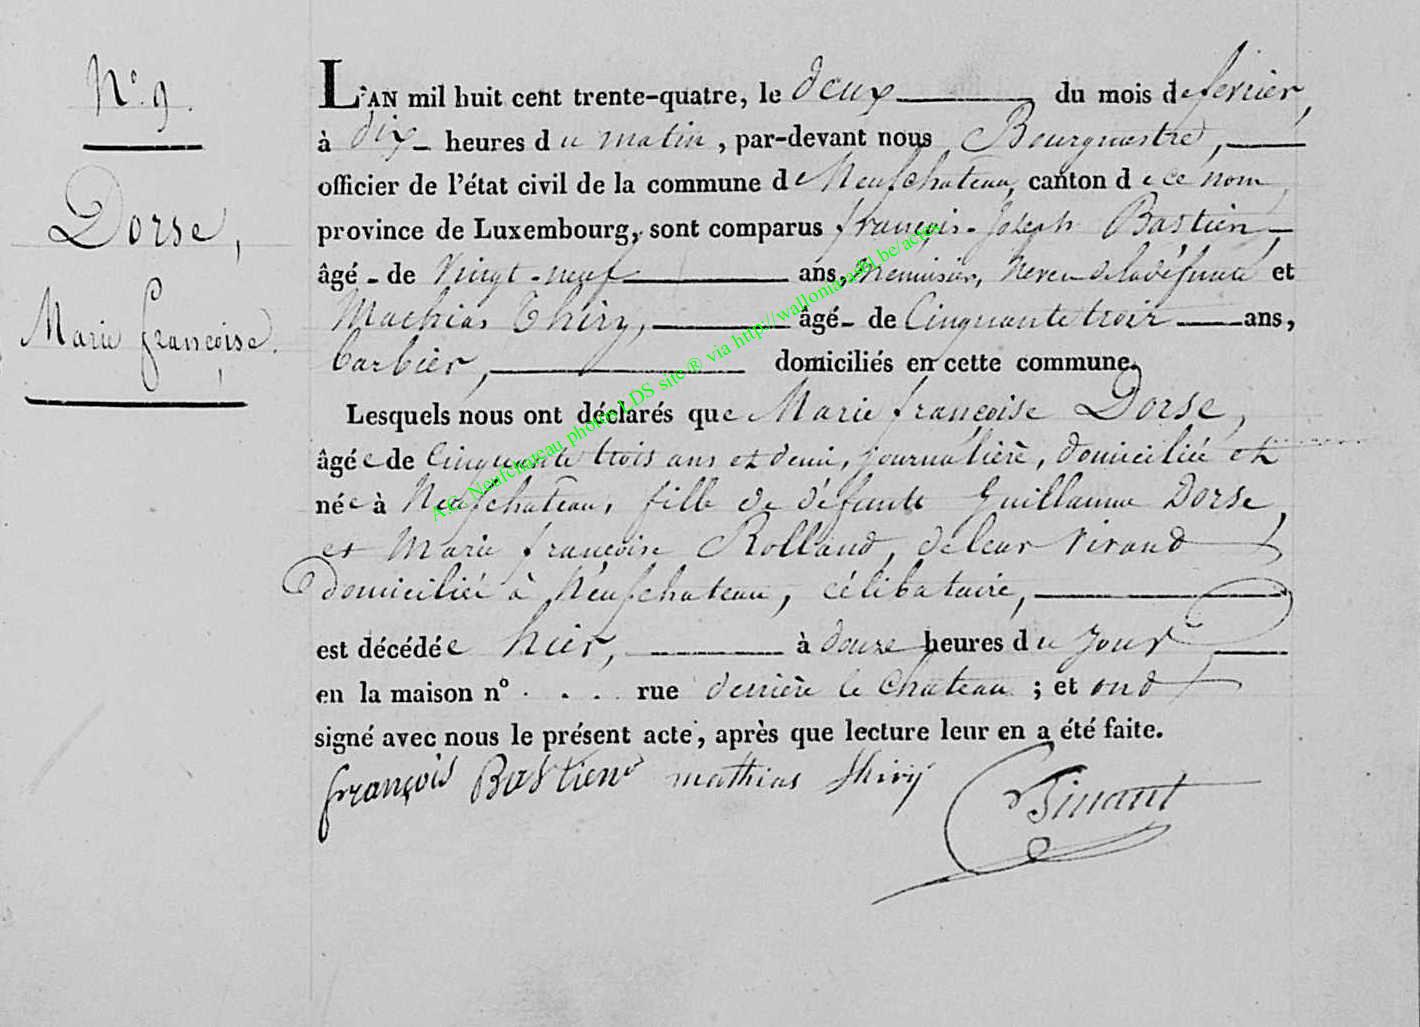 N.° 9.
Dorse,
Marie françoise.
L'AN mil huit cent trente-quatre, le deux du mois de fevrier,
à dix heures du matin, par-devant nous Bourgmestre,
officier de l'état civil de la commune de Neufchateau, canton de ce nom,
province de Luxembourg, sont comparus françois-Joseph Bastien,
âgé de Vingt-neuf ans, menuisier, neveu de la défunte et
Mathias Thiry, âgé de Cinquante trois ans,
barbier, domiciliés en cette commune.
Lesquels nous ont déclarés que Marie françoise Dorse,
âgée de Cinquante trois ans et demi, journalière, domiciliée et
née à Neufchateau, fille de défunts Guillaume Dorse,
et Marie françoise Rolland, de leur vivand
domiciliés à Neufchateau, célibataire,
est décédée hier, à douze heures du jour
en la maison n° . . . rue derrière le Chateau ; et ond
signé avec nous le présent acte, après que lecture leur en a été faite.
françois Bastien mathias thiry Binant
A.C. Neufchateau photos LDS site ® via http://wallonia.asbl.be/actes